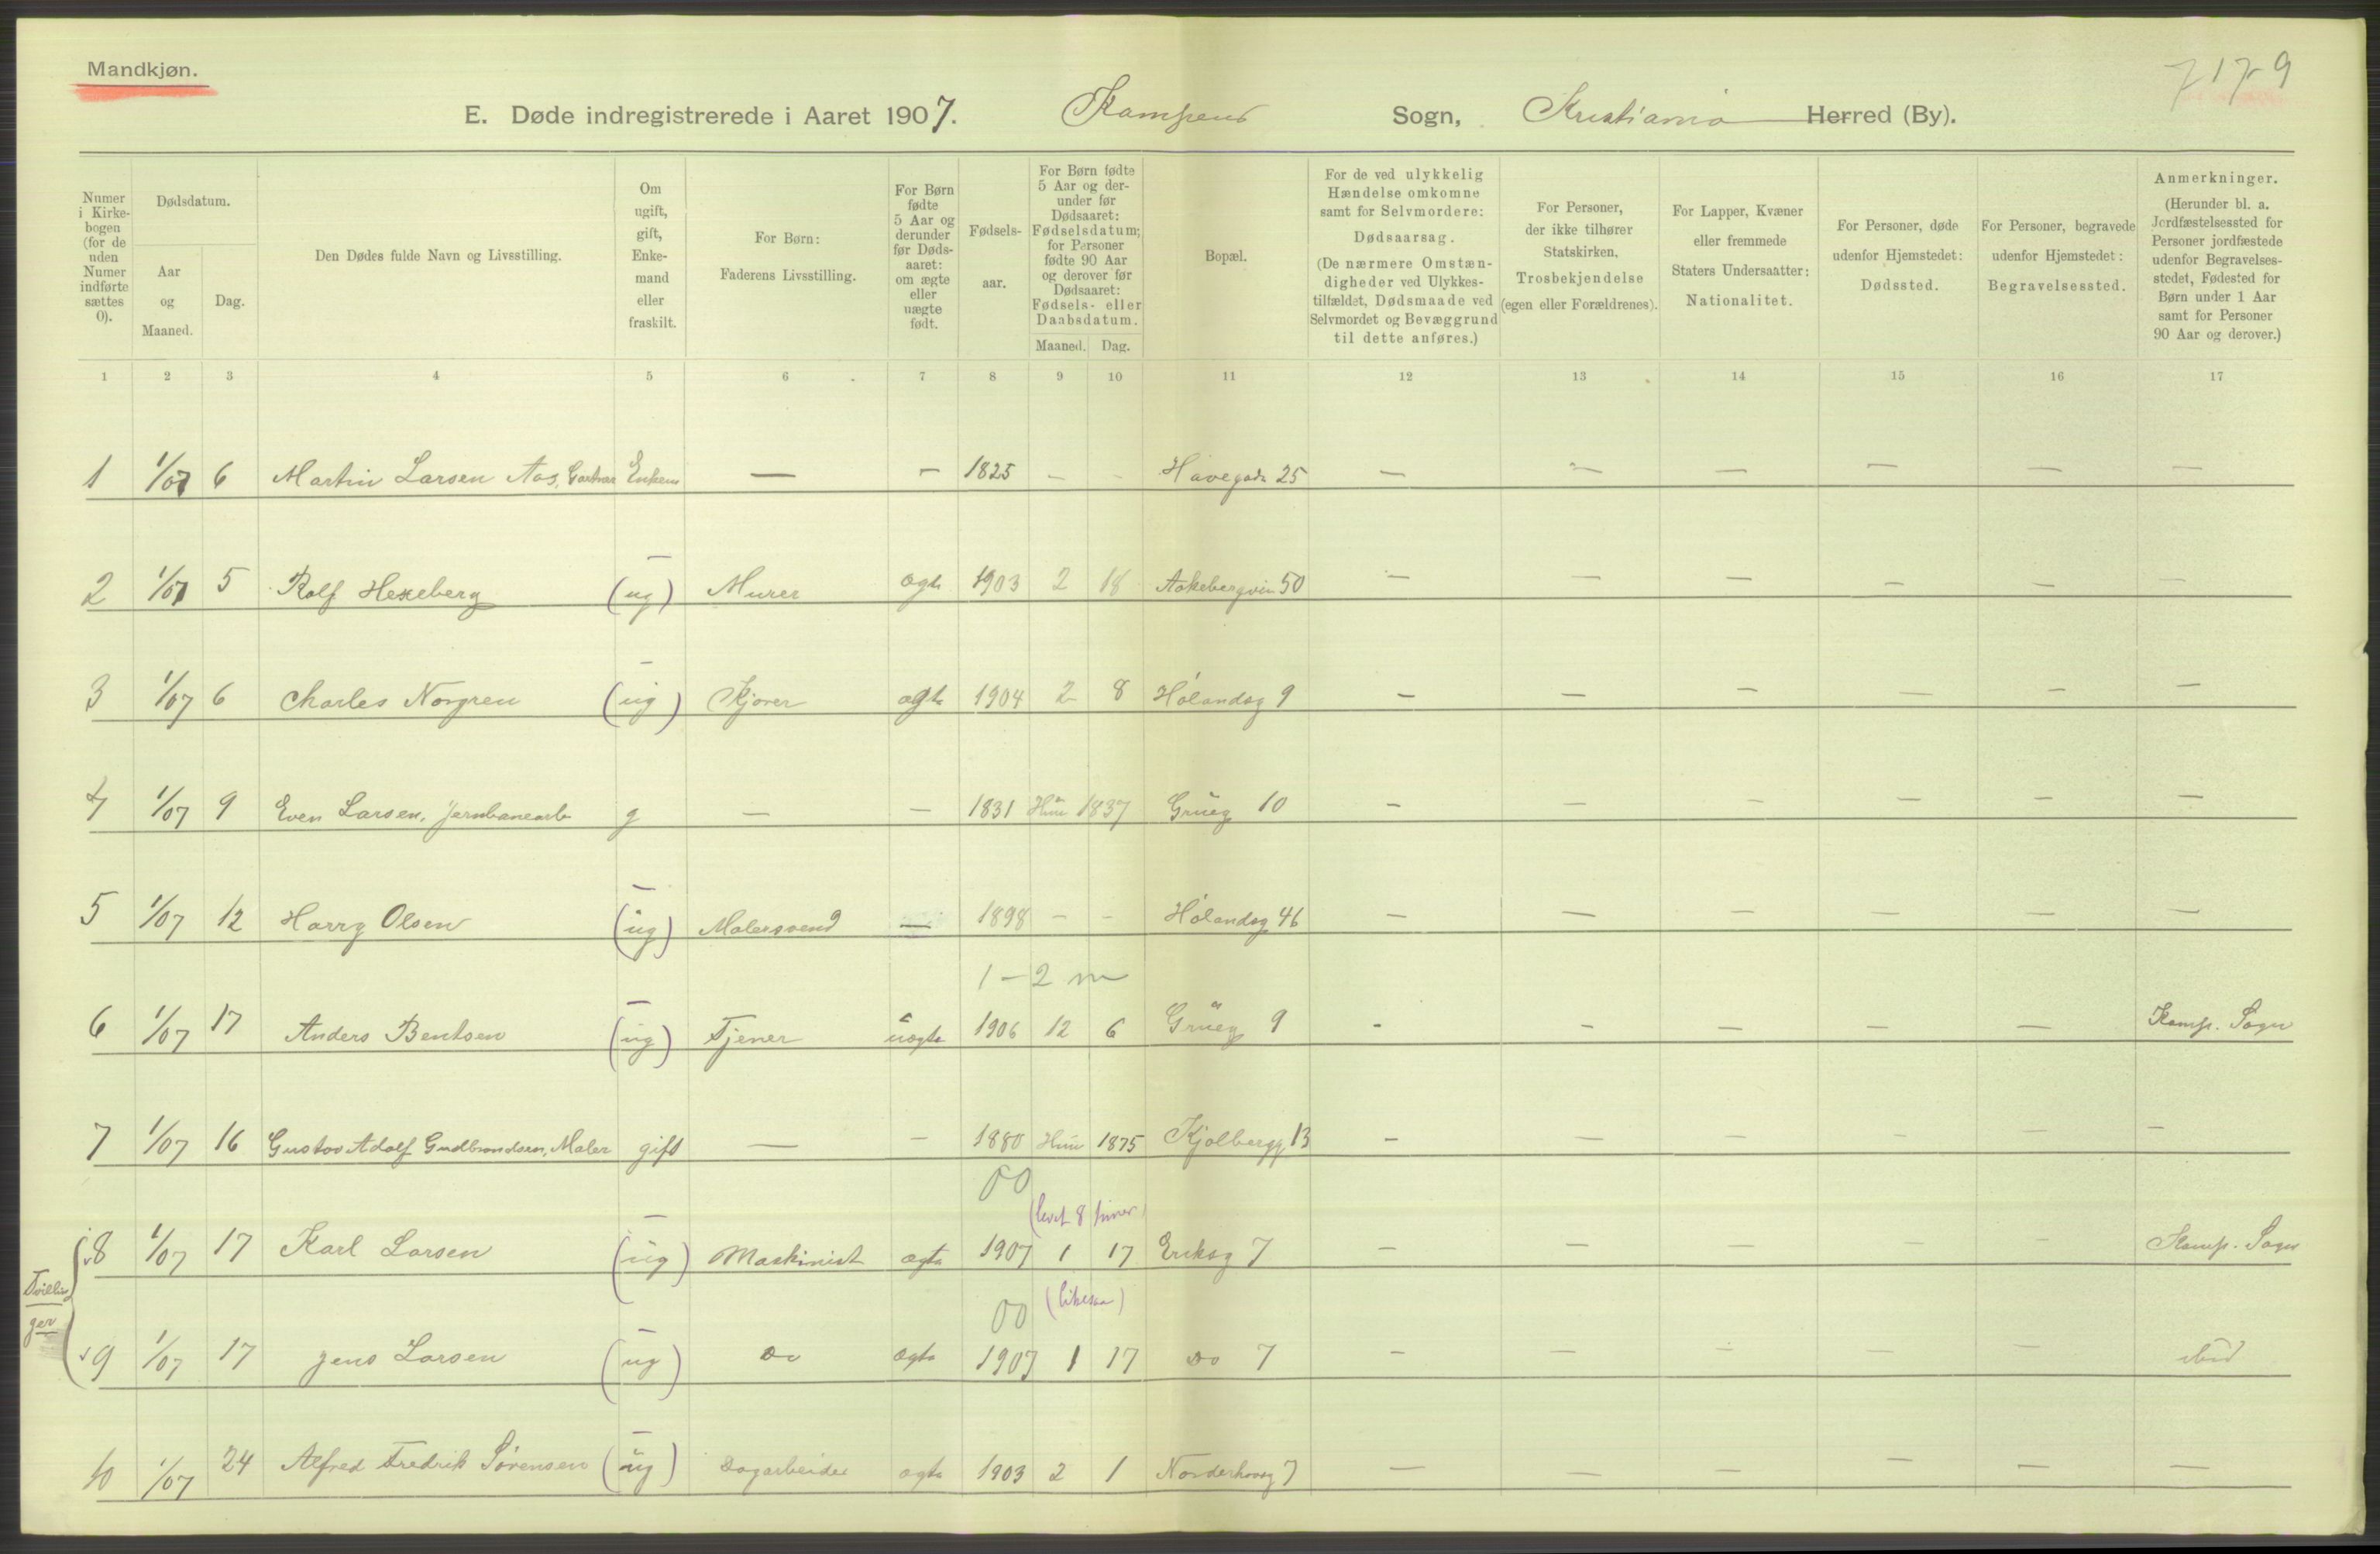 Mandkjøn.
E. Døde indregistrerede i Aaret 1907. Kampens Sogn, Kristiania Herred (By).
Numer i Kirkebogen (for de uden Numer indførte sættes 0).
Dødsdatum.
Aar og Maaned.
Dag.
Den Dødes fulde Navn og Livsstilling.
Om ugift, gift, Enkemand eller fraskilt.
For Børn: Faderens Livsstilling.
For Børn fødte 5 Aar og derunder før Dødsaaret: om ægte eller uægte født.
Fødselsaar.
For Børn fødte 5 Aar og derunder før Dødsaaret: Fødselsdatum; for Personer fødte 90 Aar og derover før Dødsaaret: Fødsels- eller Daabsdatum.
Maaned. Dag.
Bopæl.
For de ved ulykkelig Hændelse omkomne samt for Selvmordere: Dødsaarsag. (De nærmere Omstændigheder ved Ulykkestilfældet, Dødsmaade ved Selvmordet og Bevæggrund til dette anføres.)
For Personer, der ikke tilhører Statskirken, Trosbekjendelse (egen eller Forældrenes).
For Lapper, Kvæner eller fremmede Staters Undersaatter: Nationalitet.
For Personer, døde udenfor Hjemstedet: Dødssted.
For Personer, begravede udenfor Hjemstedet: Begravelsessted.
Anmerkninger. (Herunder bl. a. Jordfæstelsessted for Personer jordfæstede udenfor Begravelsesstedet, Fødested for Børn under 1 Aar samt for Personer 90 Aar og derover.)
1 2 3 4 5 6 7 8 9 10 11 12 13 14 15 16 17
1 1/07 6 Martin Larsen Aas, Gartner Enkem — — 1825 - - Havegade 25 — — — — — —
2 1/07 5 Rolf Hexeberg (ug) — Murer ægte 1903 2 18 Aakebergvein 50 — — — — — —
3 1/07 6 Charles Norgren (ug) — Kjører ægte 1904 2 8 Hølandsg 9 — — — — — —
4 1/07 9 Even Larsen, Jernbanearb g — — 1831 Hun 1837 Grüeg 10 — — — — — —
5 1/07 12 Harry Olsen (ug) — Malersvend — 1898 - - Hølandsg 46 — — — — — —
1 - 2 m
6 1/07 17 Anders Bentsen (ug) — Tjener uægte 1906 12 6 Grüeg 9 - — — — — Kamp. Sogn
7 1/07 16 Gustav Adolf Gudbrandsen, Maler gift — — 1880 Hun 1875 Kjølbergg 13 — — — — — —
00
(levet 8 timer)
8 1/07 17 Karl Larsen (ug) — Maskinist ægte 1907 1 17 Eriksg 7 — — — — — Kamp. Sogn
Tvillinger
00 (likesaa)
9 1/07 17 Jens Larsen (ug) — Do ægte 1907 1 17 Do 7 — — — — — ibid
10 1/07 24 Alfred Fredrik Sørensen (ug) — Dagarbeider ægte 1903 2 1 Norderhovsg 7 — — — — — —